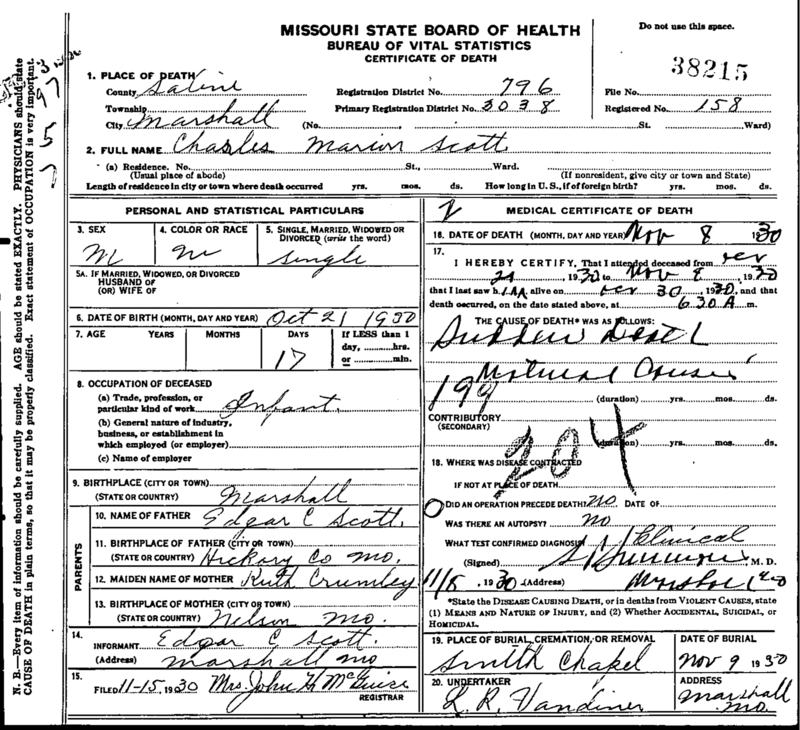 MISSOURI STATE BOARD OF HEALTH
BUREAU OF VITAL STATISTICS
CERTIFICATE OF DEATH
Do not use this space.
38215
1. PLACE OF DEATH
County Saline
Registration District No. 796
File No.
Township
Primary Registration District No. 3038
Registered No. 158
City Marshall (No. St. Ward)
2. FULL NAME Charles Marion Scott
(a) Residence. No. St., Ward.
(Usual place of abode) (If nonresident, give city or town and State)
Length of residence in city or town where death occurred yrs. mos. ds. How long in U.S., if of foreign birth? yrs. mos. ds.
PERSONAL AND STATISTICAL PARTICULARS
3. SEX
M
4. COLOR OR RACE
5. SINGLE, MARRIED, WIDOWED OR DIVORCED (write the word)
single
5A. IF MARRIED, WIDOWED, OR DIVORCED
HUSBAND OF
(OR) WIFE OF
6. DATE OF BIRTH (MONTH, DAY AND YEAR) Oct 21 1930
7. AGE YEARS MONTHS DAYS If LESS than 1
17 day, hrs.
or min.
8. OCCUPATION OF DECEASED
(a) Trade, profession, or
particular kind of work Infant.
(b) General nature of industry,
business, or establishment in
which employed (or employer)
(c) Name of employer
9. BIRTHPLACE (CITY OR TOWN)
(STATE OR COUNTRY) Marshall
PARENTS
10. NAME OF FATHER Edgar C Scott.
11. BIRTHPLACE OF FATHER (CITY OR TOWN)
(STATE OR COUNTRY) Hickory Co Mo.
12. MAIDEN NAME OF MOTHER Ruth Crumley
13. BIRTHPLACE OF MOTHER (CITY OR TOWN)
(STATE OR COUNTRY) Nelson Mo.
14.
INFORMANT Edgar C Scott.
(Address) Marshall Mo
15.
FILED 11-15, 1930 Mrs. John H McGuire
REGISTRAR
MEDICAL CERTIFICATE OF DEATH
16. DATE OF DEATH (MONTH, DAY AND YEAR) Nov 8 1930
17.
I HEREBY CERTIFY, That I attended deceased from
21, 1930 to Nov 8, 1930
that I last saw h alive on 30, 1930, and that
death occurred, on the date stated above, at 630 A m.
THE CAUSE OF DEATH* WAS AS FOLLOWS:
Sudden Death
Natural Causes
199
(duration) yrs. mos. ds.
CONTRIBUTORY
(SECONDARY)
(duration) yrs. mos. ds.
204
18. WHERE WAS DISEASE CONTRACTED
IF NOT AT PLACE OF DEATH
DID AN OPERATION PRECEDE DEATH? NO DATE OF
WAS THERE AN AUTOPSY? NO
WHAT TEST CONFIRMED DIAGNOSIS? Clinical
(Signed) M. D.
11/8, 1930 (Address) Marshall Mo
*State the DISEASE CAUSING DEATH, or in deaths from VIOLENT CAUSES, state
(1) MEANS AND NATURE OF INJURY, and (2) Whether ACCIDENTAL, SUICIDAL, or
HOMICIDAL.
19. PLACE OF BURIAL, CREMATION, OR REMOVAL
Smith Chapel
DATE OF BURIAL
Nov 9 1930
20. UNDERTAKER
L. R. Vandiver
ADDRESS
Marshall Mo.
N. B.—Every item of information should be carefully supplied. AGE should be stated EXACTLY. PHYSICIANS should state
CAUSE OF DEATH in plain terms, so that it may be properly classified. Exact statement of OCCUPATION is very important.